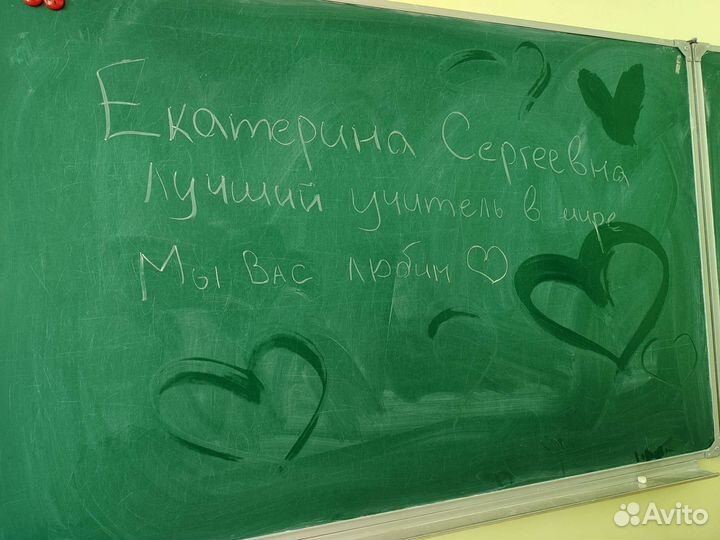 Екатерина Сергеевна
лучший учитель в мире
Мы Вас любим ♡
Avito